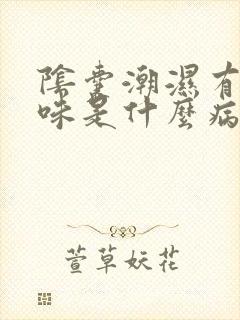 陰囊潮濕有
味是什麼病
萱草妖花